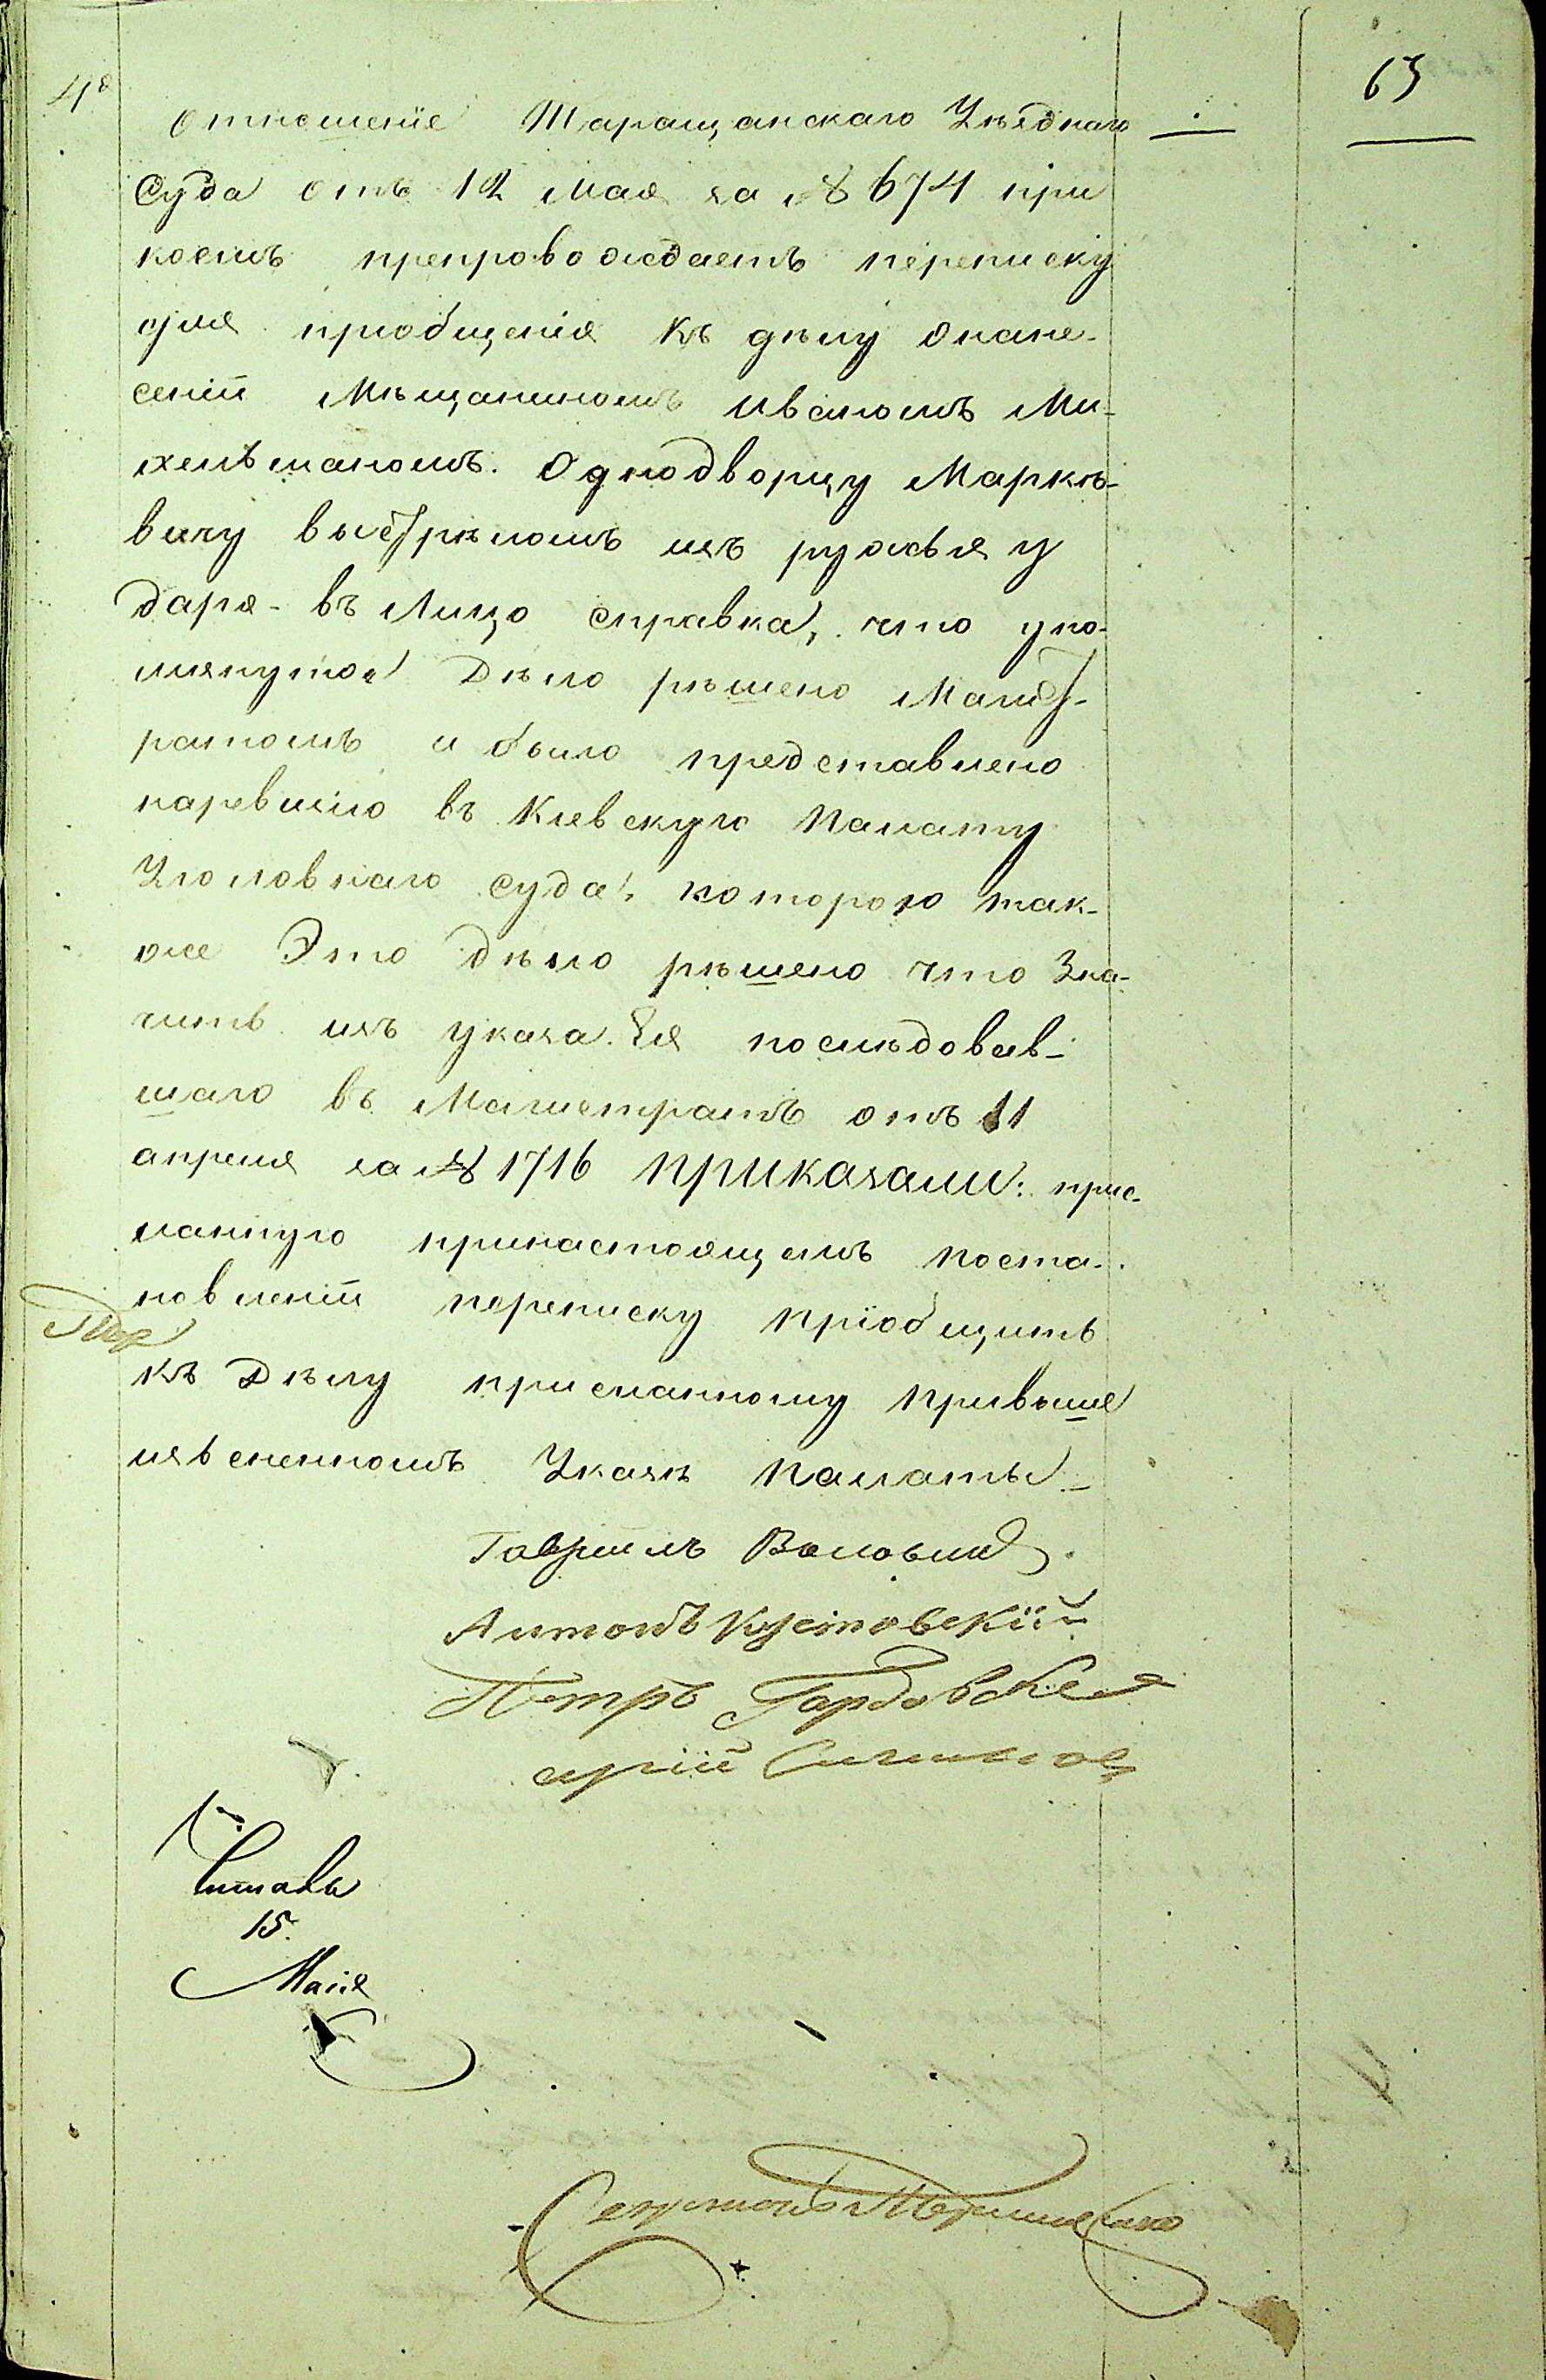 4е
63
отношеніе Таращанскаго Уѣзднаго
Суда отъ 12 Мая за № 674 при
коемъ препровождаетъ переписку
для приобщенія къ дѣлу онане-
сеніи Мѣщаниномъ Иваномъ Ми-
хельманомъ. Однодворцу Маркѣ-
вичу выстрѣломъ изъ ружья у
дара въ Лицо справка, что упо-
мянутое Дѣло рѣшено Магист-
ратомъ и было представлено
наревизію въ Кіевскую Палату
Уголовнаго суда, которою так-
же Это дѣло рѣшено что Зна-
читъ изъ указа Ея послѣдовав-
шаго въ Магистратъ отъ 11
апреля за № 1716 приказали: прис-
ланную принастоящемъ поста-
новленіи переписку пріобщить
къ Дѣлу присланному привыше
изъсненномъ Указѣ Палаты
Гавріилъ
Антонъ Кустовскій
Петръ Гордовскій
Читалъ
15.
Маія